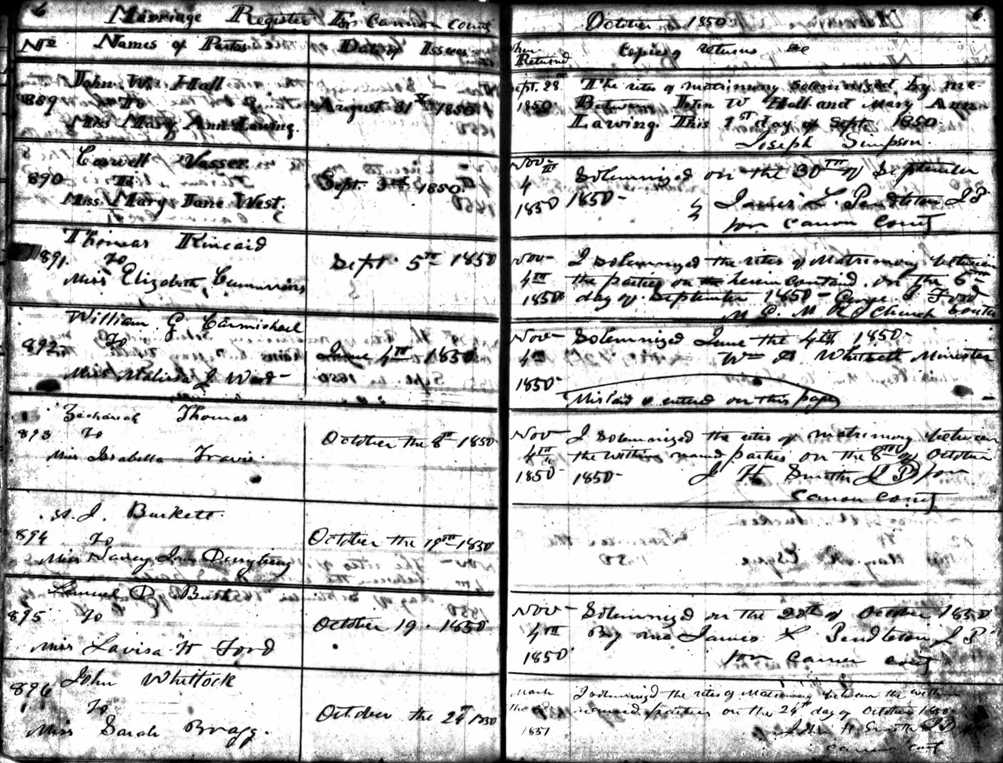 6 Marriage Register For Cannon County
No Names of Parties Date of Issue
John W. Hall
889 To August 31st 1850
Miss Mary Ann Lawing.
Carvell Vasser
890 To Sept. 3rd 1850
Miss. Mary Jane West.
Thomas Kincaid
891. to Sept. 5th 1850
Miss Elizabeth Cummins
William G. Carmichael
892 to June 4th 1850
Miss Malissa J Wood
Zachariah Thomas
893 To October the 8th 1850
Miss Isabella Travis.
J. Burkett
894 To October the 19th 1850
Miss Nancy
Samuel
895 To October 19. 1850
Miss Lavisa W Ford
John Whitlock
896 To October the 24th 1850
Miss Sarah Bragg.
October 1850 6
When Returned Copies of returns &c
Sept. 28th The rites of matrimony solemnized by me
1850 Between John W Hall and Mary Ann
Lawing. This 1st day of Sept. 1850
Joseph Simpson.
Nov- Solemnized on the 30th of September
4th
1850 1850- James L. Pendleton J P
for Canon County
Nov- I solemnized the rites of Matrimony between
4th the parties on the herein contained on the 6th
1850 day of September 1850- George Ford
M. Church South
Nov- Solemnized June the 4th 1850-
4th Wm Whitsett Minister
1850-
Mislaid & entered on this page
Nov- I solemnized the rites of matrimony between
4th the within named parties on the 8th of October
1850 1850- J H Smith J P for
Canon County
Nov- Solemnized on the 20th of October 1850
4th By me James L Pendleton J P
1850- for Canon County
March I solemnized the rites of Matrimony between the within
the named parties on the 24th day of October 1850
1851 H Smith J P
Canon County